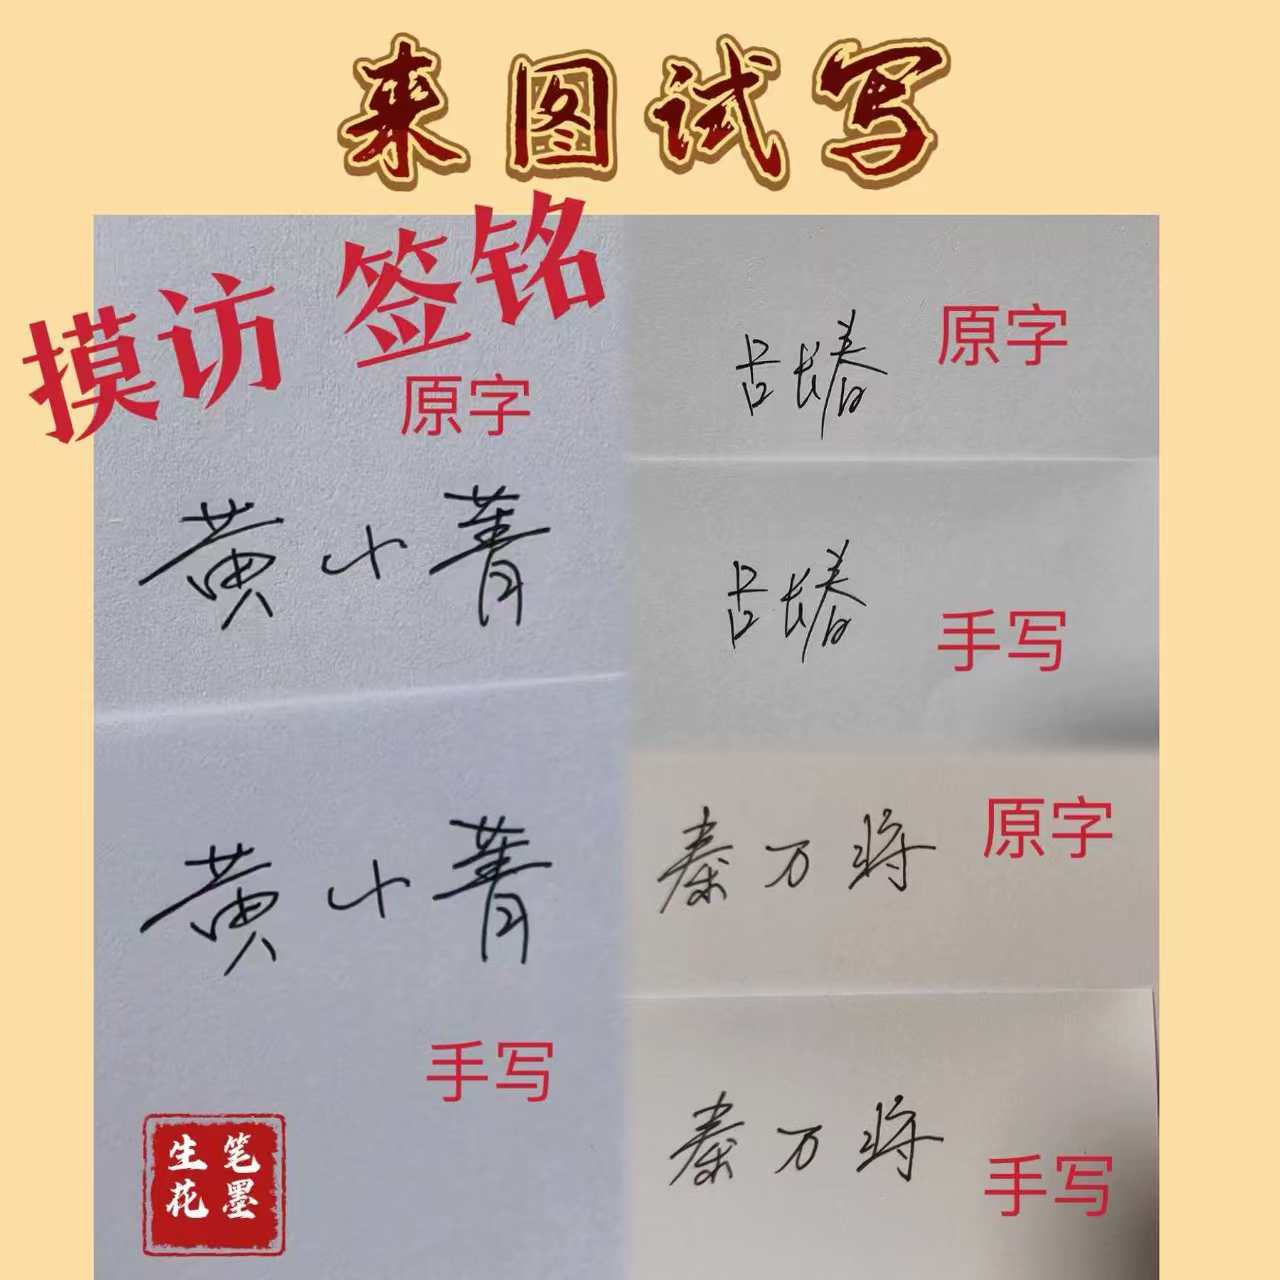 来图试写
摸访 签铭
原字
黄小菁
黄小菁
手写
原字
古长春
古长春
手写
原字
秦万将
秦万将
手写
笔墨
生花